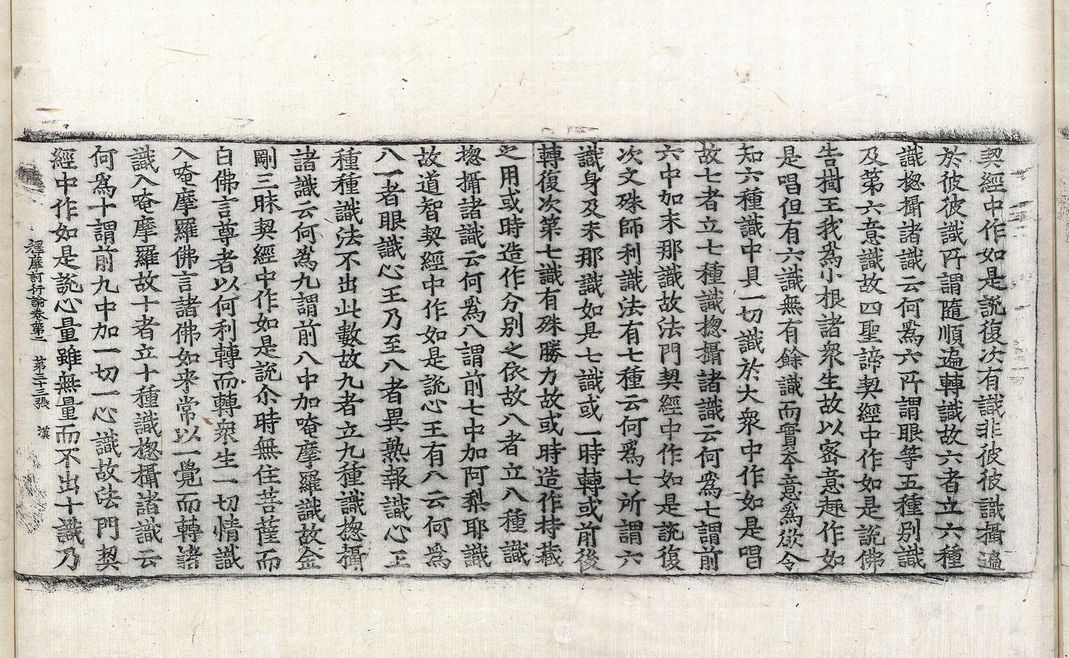 契經中作如是說復次有識非彼彼識攝遍
於彼彼識所謂隨順遍轉識故六者立六種
識揔攝諸識云何爲六所謂眼等五種別識
及第六意識故四聖諦契經中作如是說佛
告樹王我爲小根諸衆生故以密意趣作如
是唱但有六識無有餘識而實本意爲欲令
知六種識中具一切識於大衆中作如是唱
故七者立七種識揔攝諸識云何爲七謂前
六中加末那識故法門契經中作如是說復
次文殊師利識法有七種云何爲七所謂六
識身及末那識如是七識或一時轉或前後
轉復次第七識有殊勝力故或時造作持藏
之用或時造作分別之依故八者立八種識
揔攝諸識云何爲八謂前七中加阿梨耶識
故道智契經中作如是說心王有八云何爲
八一者眼識心王乃至八者異熟報識心王
種種識法不出此數故九者立九種識揔攝
諸識云何爲九謂前八中加唵摩羅識故金
剛三昧契經中作如是說尒時無住菩薩而
白佛言尊者以何利轉而轉衆生一切情識
入唵摩羅佛言諸佛如來常以一覺而轉諸
識入唵摩羅故十者立十種識揔攝諸識云
何爲十謂前九中加一切一心識故法門契
經中作如是說心量雖無量而不出十識乃
釋摩訶衍論卷第二 第二十二張 漢